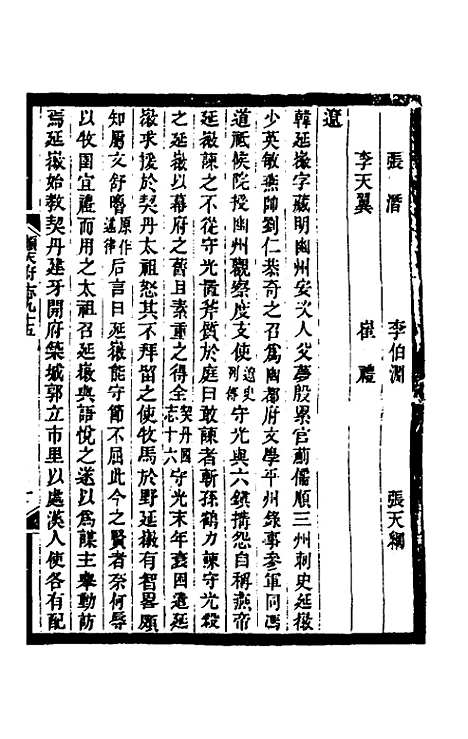 張潛　李伯淵　張天綱
李天翼　崔禮
遼
韓延徽字藏明幽州安次人父夢殷累官薊儒順三州刺史延徽
少英敏燕帥劉仁恭奇之召爲幽都府文學平州錄事參軍同馮
道祗候院授幽州觀察度支使遼史列傳守光與六鎮搆怨自稱燕帝
延徽諫之不從守光置斧質於庭曰敢諫者斬孫鶴力諫守光殺
之延徽以幕府之舊且素重之得全契丹國志十六守光末年衰困遣延
徽求援於契丹太祖怒其不拜留之使牧馬於野延徽有智畧頗
知屬文舒嚕原作述律后言曰延徽能守節不屈此今之賢者奈何辱
以牧圉宜禮而用之太祖召延徽與語悅之遂以爲謀主舉動訪
焉延徽始教契丹建牙開府築城郭立市里以處漢人使各有配
順天府志九十五